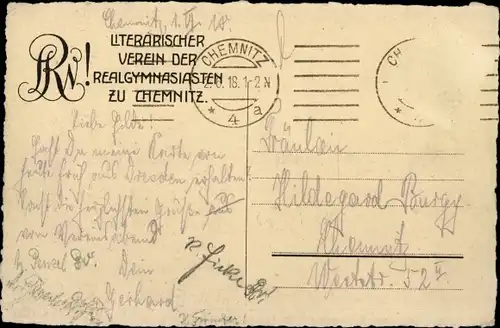 Chemnitz, 1. VI. 18.
LRV!
LITERARISCHER
VEREIN DER
REALGYMNASIASTEN
ZU CHEMNITZ.
CHEMNITZ
2.6.18.1-2N
* 4 a
CH
*
Liebe Hilde!
Hast Du meine Karte von
heute früh aus Dresden erhalten
die herzlichsten Grüße aus
vom Vereinsabend
Dein
Gerhard
Fräulein
Hildegard Burgy
Chemnitz
Weststr. 52 II